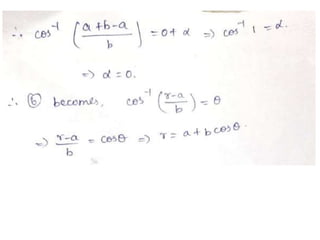 ∴ cos⁻¹ ((a+b-a)/b) = 0+α ⇒ cos⁻¹ 1 = α.
⇒ α = 0.
∴ ⑥ becomes, cos⁻¹ ((r-a)/b) = θ
⇒ (r-a)/b = cosθ ⇒ r = a+b cosθ.